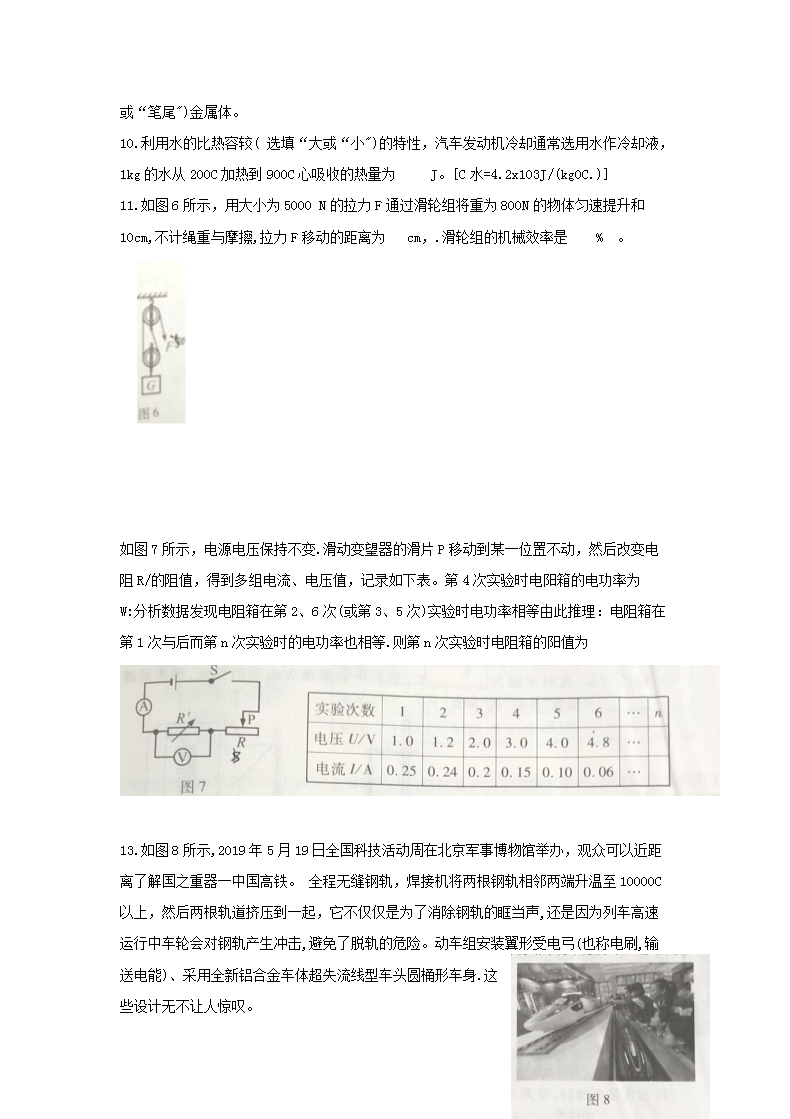 或“笔尾")金属体。
10.利用水的比热容较( 选填“大或“小")的特性，汽车发动机冷却通常选用水作冷却液，
1kg的水从200C加热到900C心吸收的热量为     J。[C水=4.2x103J/(kgOC.)]
11.如图6所示，用大小为5000 N的拉力F通过滑轮组将重为800N的物体匀速提升和
10cm,不计绳重与摩擦,拉力F移动的距离为   cm，.滑轮组的机械效率是    %  。
F
G
图6
如图7所示，电源电压保持不变.滑动变望器的滑片P移动到某一位置不动，然后改变电
阻R/的阻值，得到多组电流、电压值，记录如下表。第4次实验时电阳箱的电功率为
W:分析数据发现电阻箱在第2、6次(或第3、5次)实验时电功率相等由此推理：电阻箱在
第1次与后而第n次实验时的电功率也相等.则第n次实验时电阻箱的阳值为
S
A
R'
P
R
V
图7
实验次数 1 2 3 4 5 6 … n
电压U/V 1.0 1.2 2.0 3.0 4.0 4.8 …
电流I/A 0.25 0.24 0.2 0.15 0.10 0.06 …
13.如图8所示,2019年5月19日全国科技活动周在北京军事博物馆举办，观众可以近距
离了解国之重器一中国高铁。 全程无缝钢轨，焊接机将两根钢轨相邻两端升温至10000C
以上，然后两根轨道挤压到一起，它不仅仅是为了消除钢轨的眶当声,还是因为列车高速
运行中车轮会对钢轨产生冲击,避免了脱轨的危险。动车组安装翼形受电弓(也称电刷,输
送电能)、采用全新铝合金车体超失流线型车头圆桶形车身.这
些设计无不让人惊叹。
图8